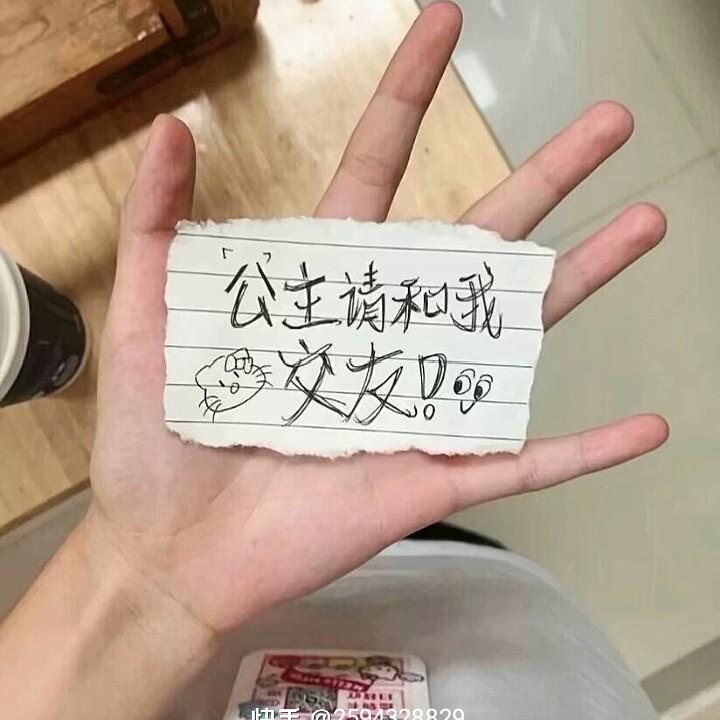 「公主请和我
交友!
快手 @2594328829